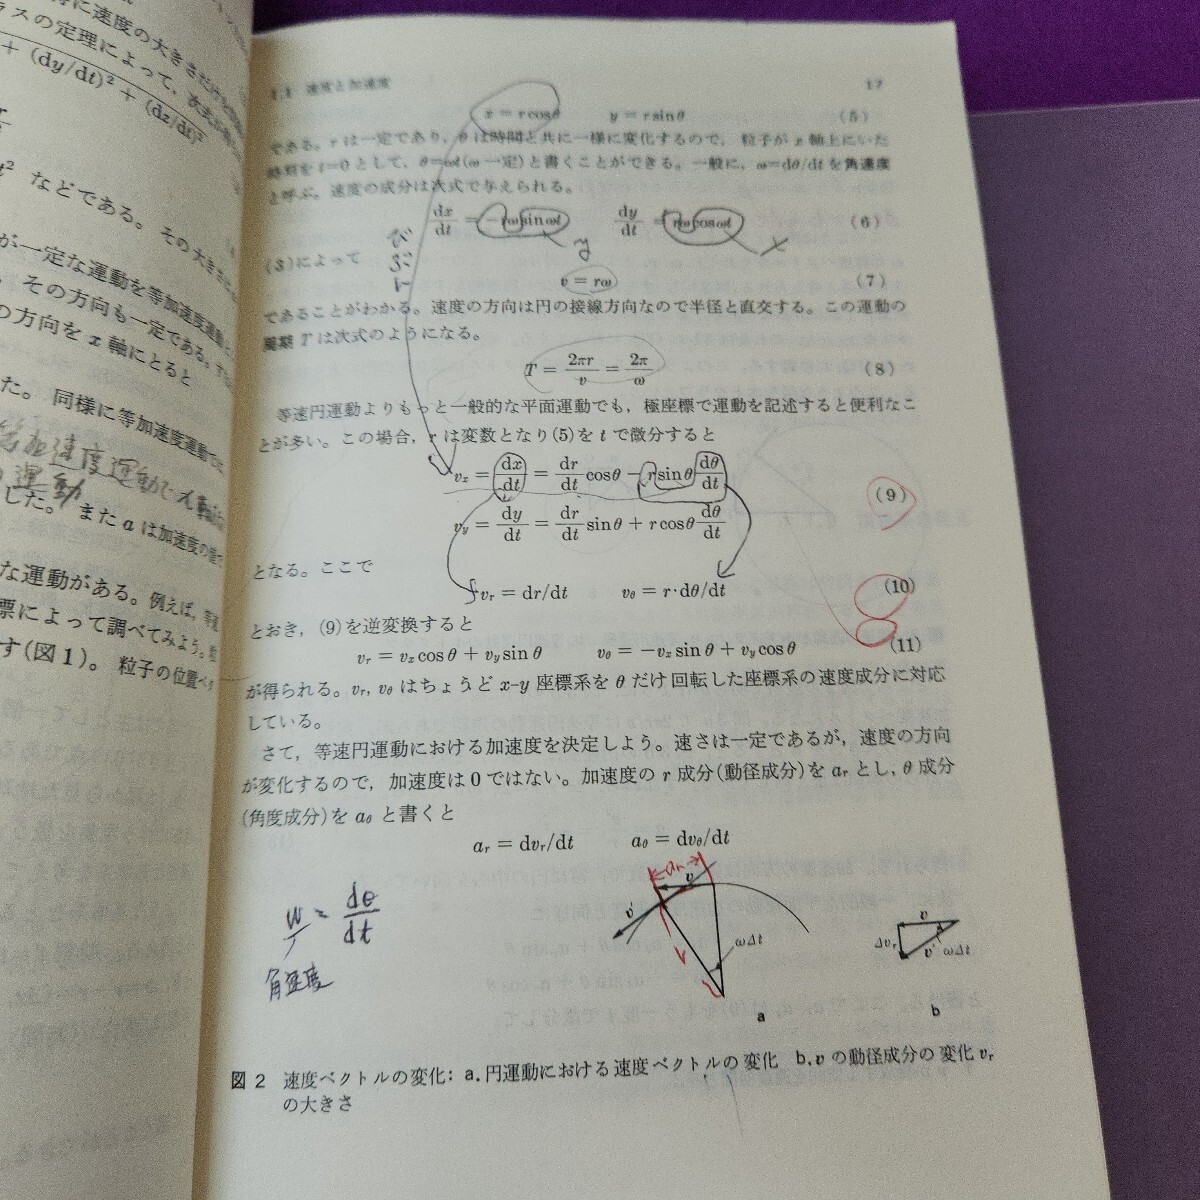 に速度の大きさだけを
ラスの定理によって，次式が
+ (dy/dt)² + (dz/dt)²
などである。その大きさに
が一定な運動を等加速度運動と
その方向も一定である。
の方向を x 軸にとると
た。同様に等加速度運動では
等加速度運動で
運動
した。また a は加速度の
な運動がある。例えば，等速
票によって調べてみよう。粒
す(図1)。粒子の位置ベ
1.1 速度と加速度 17
x = r cosθ y = r sinθ (5)
である。r は一定であり，θ は時間と共に一様に変化するので，粒子が x 軸上にいた
時刻を t=0 として，θ=ωt(ω 一定)と書くことができる。一般に，ω=dθ/dt を角速度
と呼ぶ。速度の成分は次式で与えられる。
dx/dt = −rω sinωt dy/dt = rω cosωt (6)
y x
び
ぶ
ん
(3)によって
v = rω (7)
であることがわかる。速度の方向は円の接線方向なので半径と直交する。この運動の
周期 T は次式のようになる。
T = 2πr/v = 2π/ω (8)
等速円運動よりもっと一般的な平面運動でも，極座標で運動を記述すると便利なこ
とが多い。この場合，r は変数となり(5)を t で微分すると
vx = dx/dt = dr/dt cosθ − r sinθ dθ/dt
(9)
vy = dy/dt = dr/dt sinθ + r cosθ dθ/dt
となる。ここで
vr = dr/dt vθ = r·dθ/dt (10)
とおき，(9)を逆変換すると
vr = vx cosθ + vy sinθ vθ = −vx sinθ + vy cosθ (11)
が得られる。vr, vθ はちょうど x–y 座標系を θ だけ回転した座標系の速度成分に対応
している。
さて，等速円運動における加速度を決定しよう。速さは一定であるが，速度の方向
が変化するので，加速度は 0 ではない。加速度の r 成分(動径成分)を ar とし，θ 成分
(角度成分)を aθ と書くと
ar = dvr/dt aθ = dvθ/dt
ω = dθ/dt
角速度
ar
v
v′
ωΔt
a
v
Δvr
v′ ωΔt
b
図 2 速度ベクトルの変化： a. 円運動における速度ベクトルの変化 b. v の動径成分の変化 vr
の大きさ